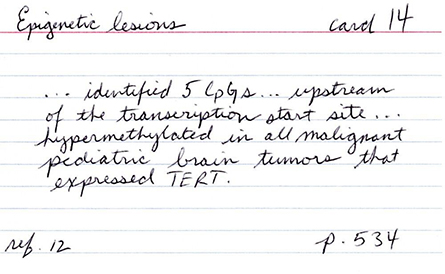 Epigenetic lesions card 14
... identified 5 CpGs... upstream
of the transcription start site...
hypermethylated in all malignant
pediatric brain tumors that
expressed TERT.
ref. 12 p. 534